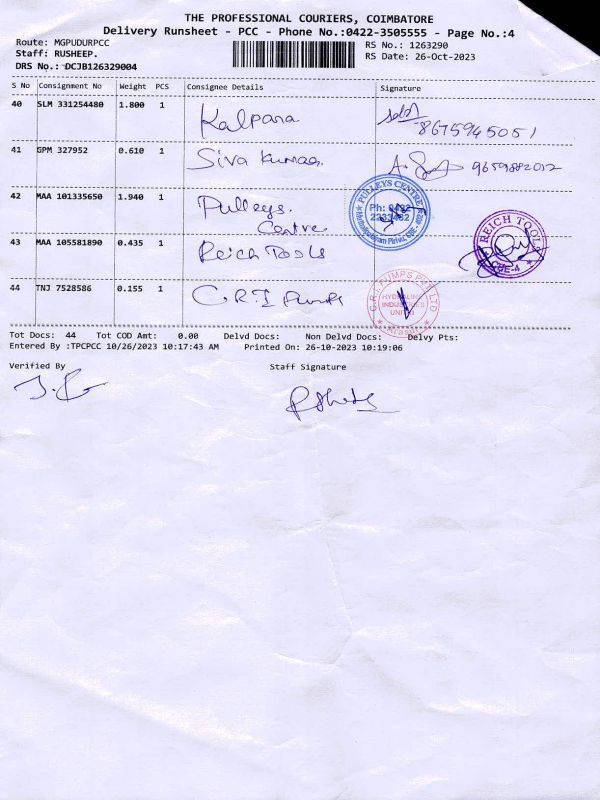 THE PROFESSIONAL COURIERS, COIMBATORE
Delivery Runsheet - PCC - Phone No.:0422-3505555 - Page No.:4
Route: MGPUDURPCC
RS No.: 1263290
Staff: RUSHEEP.
RS Date: 26-Oct-2023
DRS No.: DCJB126329004
S No Consignment No Weight PCS Consignee Details Signature
40 SLM 331254480 1.800 1 Kalpana 8675945051
41 GPM 327952 0.610 1 Siva Kumaar 9659882012
42 MAA 101335650 1.940 1 Pulleys.
Centre
PULLEYS CENTRE
Ph: 0422
2233482
43 MAA 105581890 0.435 1 Reich Tools
REICH TOOL
CBE-4
44 TNJ 7528586 0.155 1 C.R.I Pumps
C.R.I. PUMPS PVT LTD
INDUSTRIES
UNIT
Arasur
Tot Docs: 44 Tot COD Amt: 0.00 Delvd Docs: Non Delvd Docs: Delvy Pts:
Entered By :TPCPCC 10/26/2023 10:17:43 AM Printed On: 26-10-2023 10:19:06
Verified By Staff Signature